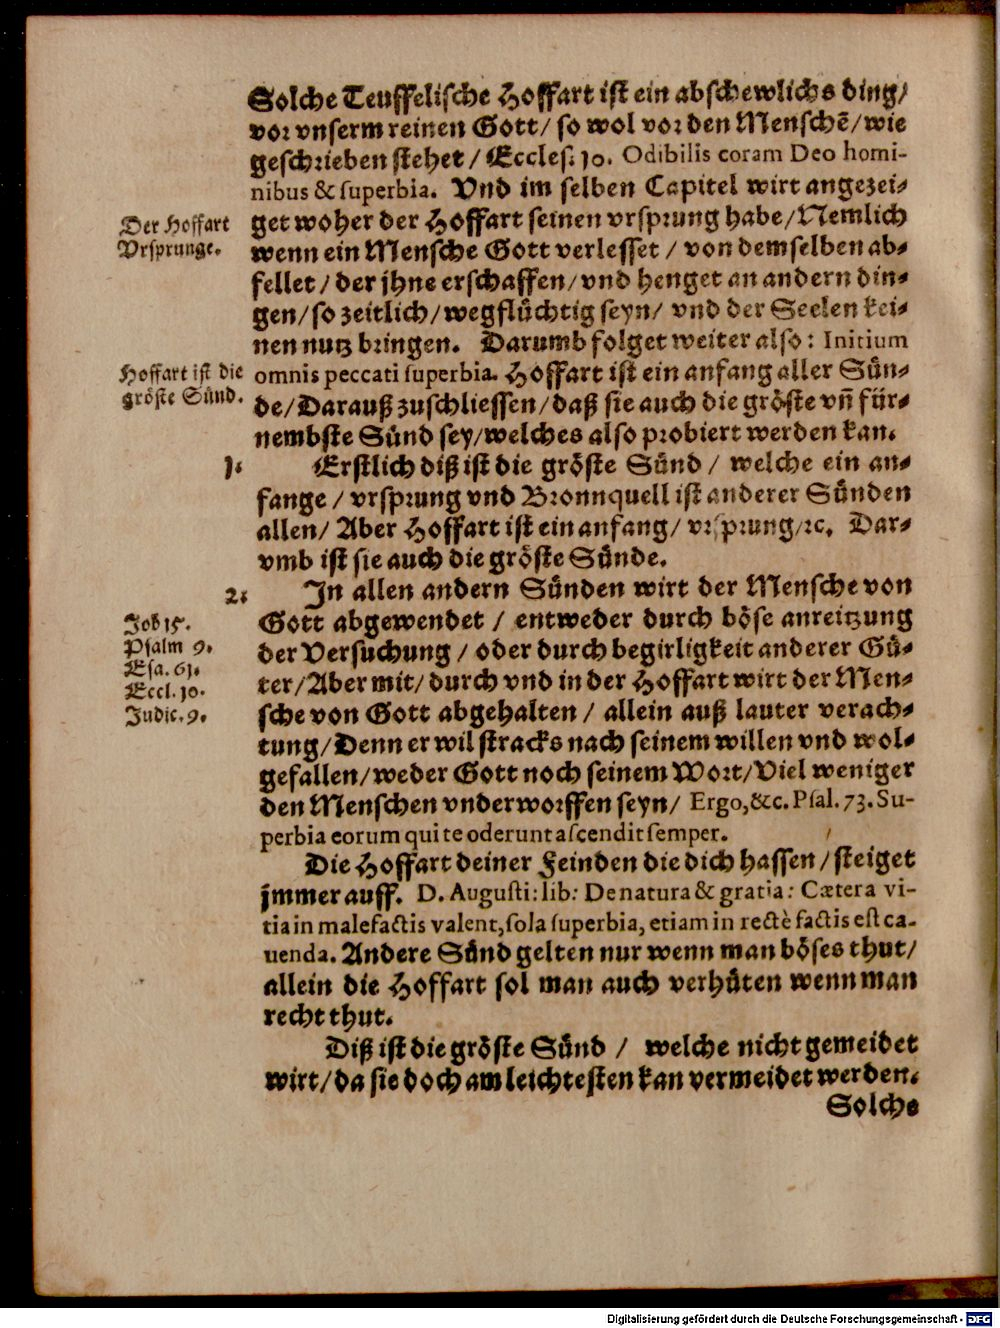 Solche Teuffelische Hoffart ist ein abschewlichs ding/
vor vnserm reinen Gott/ so wol vor den Menschẽ/ wie
geschrieben stehet / Eccles. 10. Odibilis coram Deo homi-
nibus & superbia. Vnd im selben Capitel wirt angezei-
Der Hoffart
Vrsprunge.
get woher der Hoffart seinen vrsprung habe/ Nemlich
wenn ein Mensche Gott verlesset / von demselben ab-
fellet / der jhne erschaffen/ vnd henget an andern din-
gen/ so zeitlich/ wegflüchtig seyn/ vnd der Seelen kei-
nen nutz bringen. Darumb folget weiter also: Initium
Hoffart ist die
gröste Sünd.
omnis peccati superbia. Hoffart ist ein anfang aller Sün-
de/ Darauß zuschliessen/ daß sie auch die gröste vñ für-
nembste Sünd sey/ welches also probiert werden kan.
1.
Erstlich diß ist die gröste Sünd / welche ein an-
fange / vrsprung vnd Bronnquell ist anderer Sünden
allen/ Aber Hoffart ist ein anfang/ vrsprung/ ꝛc. Dar-
vmb ist sie auch die gröste Sünde.
2.
In allen andern Sünden wirt der Mensche von
Job 15.
Psalm 9.
Esa. 61.
Eccl. 10.
Judic. 9.
Gott abgewendet / entweder durch böse anreitzung
der Versuchung / oder durch begirligkeit anderer Gü-
ter/ Aber mit/ durch vnd in der Hoffart wirt der Men-
sche von Gott abgehalten / allein auß lauter verach-
tung/ Denn er wil stracks nach seinem willen vnd wol-
gefallen/ weder Gott noch seinem Wort/ Viel weniger
den Menschen vnderworffen seyn/ Ergo, &c. Psal. 73. Su-
perbia eorum qui te oderunt ascendit semper.
Die Hoffart deiner Feinden die dich hassen / steiget
jmmer auff. D. Augusti: lib: De natura & gratia: Cætera vi-
tia in malefactis valent, sola superbia, etiam in rectè factis est ca-
uenda. Andere Sünd gelten nur wenn man böses thut/
allein die Hoffart sol man auch verhüten wenn man
recht thut.
Diß ist die gröste Sünd / welche nicht gemeidet
wirt/ da sie doch am leichtesten kan vermeidet werden.
Solche
Digitalisierung gefördert durch die Deutsche Forschungsgemeinschaft - DFG